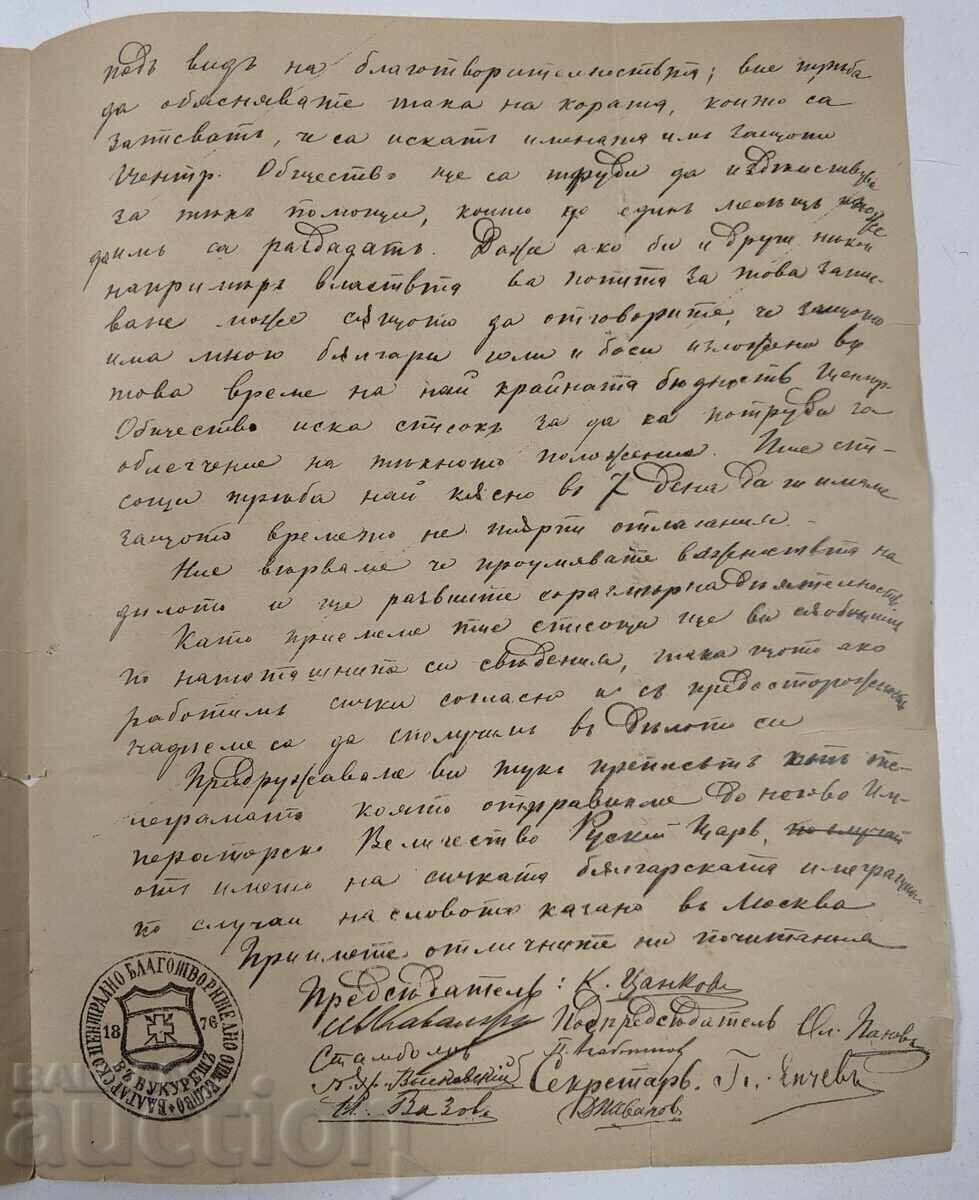 подъ видъ на благотворителностьта; вие тръба
да обяснявате така на хората, които са
записватъ, че са искатъ имената имъ защото
Центр. Общество ще са труди да издѣйствува
за тѣхъ помощи, които до единъ месецъ може
да имъ са раздадатъ. Даже ако би и други нѣкой
напримѣръ властьта ва попита за това запис-
ване може същото да отговорите, че защото
има много българи голи и боси изложени въ
това време на най крайната бѣдность Центр.
Общество иска списокъ за да са потруди за
облегчение на тѣхното положение. Тие спи-
соци трѣба най късно въ 7 дена да ги имаме
защото времето не търпи отлагания. -
Ние вѣрваме че проумявате важностьта на
дѣлото и ще развиете съразмѣрна дѣятелность.
Като приемеме тие списоци ще ви съобщиме
по нататашнита си сведения, така щото ако
работимъ сички согласно и съ предосторожность
надѣеме са да сполучимъ въ дѣлото си
Придружаваме ви тукъ преписътъ отъ те-
леграмата която отправихме до негово Им-
ператорско Величество Руский Царь, по случай
отъ името на сичката българската имеграция
по случаи на словото казано въ Москва
Приимете отличните ни почитания
Председатель: К. Цанковъ
Подпредседатель Ол. Пановъ
Стамболовъ
Секретарь. Г. Янчевъ
Вл. Высковский
Ив. Вазовъ
Д. Ивановъ
БЪЛГАРСКО ЦЕНТРАЛНО БЛАГОТВОРИТЕЛНО ОБЩЕСТВО
18 76
ВЪ БУКУРЕЩЪ
auction